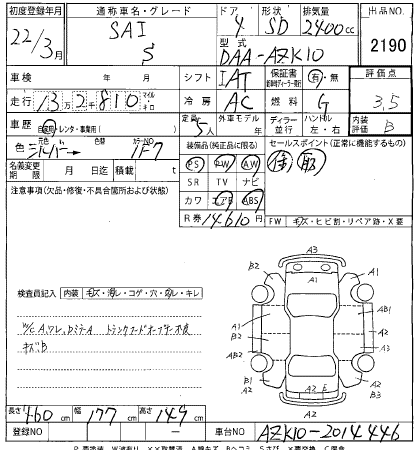 初度登録年月 通称車名・グレード ドア 形状 排気量 出品NO.
22/3月 SAI S 4 SD 2400cc 2190
型式 DAA-AZK10
車検 年 月 シフト IAT 保証書 有・無 評価点
走行 13万2千810 マイル キロ 冷房 AC 燃料 G 3.5
車歴 自家用・レンタ・事業用( ) 定員 5人 外車モデル 年 ディーラー 並行 ハンドル 左・右 内装評価 B
色 元色 シルバー 色替 カラーNO 1F7 装備品(純正品に限る) セールスポイント(正常に機能するもの)
名義変更期限 月 日 迄 積載 t PS PW AW 保 取
注意事項(欠品・修復・不具合箇所および状態) SR TV ナビ
カワ エアB ABS
R券 14610円 FW キズ・ヒビ割・リペア跡・X要
A3
B2 A1 A1
検査員記入 内装 キズ・汚レ・コゲ・穴・切レ・キレ
AB1
A1 A2
B2
AB2 A3
キズB
B1 A2 E A2
A2 B3
A2
長さ 460cm 幅 177cm 高さ 149cm
登録NO ー 車台NO AZK10-2014446